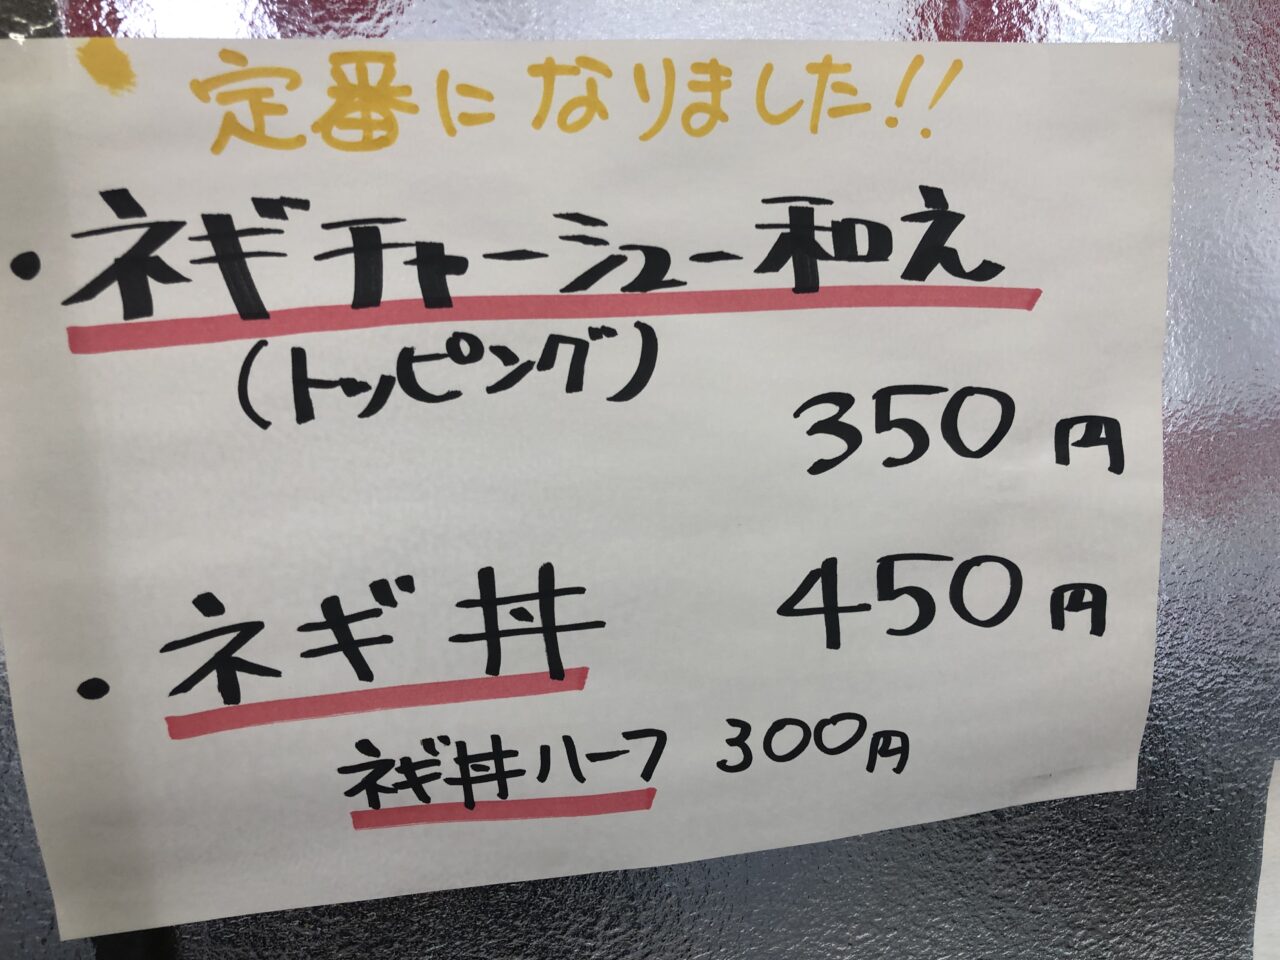 定番になりました!!
・ネギチャーシュー和え
(トッピング)
350円
・ネギ丼 450円
ネギ丼ハーフ 300円